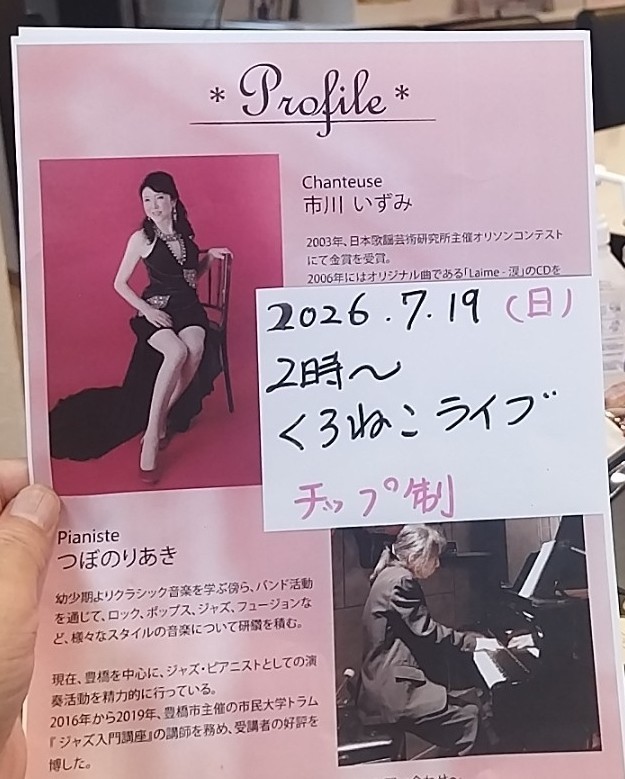 * Profile *
Chanteuse
市川 いずみ
2003年、日本歌謡芸術研究所主催オリソンコンテスト
にて金賞を受賞。
2006年にはオリジナル曲である「Laime - 涙」のCDを
2026.7.19(日)
2時〜
くろねこライブ
チップ制
Pianiste
つぼのりあき
幼少期よりクラシック音楽を学ぶ傍ら、バンド活動
を通じて、ロック、ポップス、ジャズ、フュージョンな
ど、様々なスタイルの音楽について研鑽を積む。
現在、豊橋を中心に、ジャズ・ピアニストとしての演
奏活動を精力的に行っている。
2016年から2019年、豊橋市主催の市民大学トラム
『ジャズ入門講座』の講師を務め、受講者の好評を
博した。